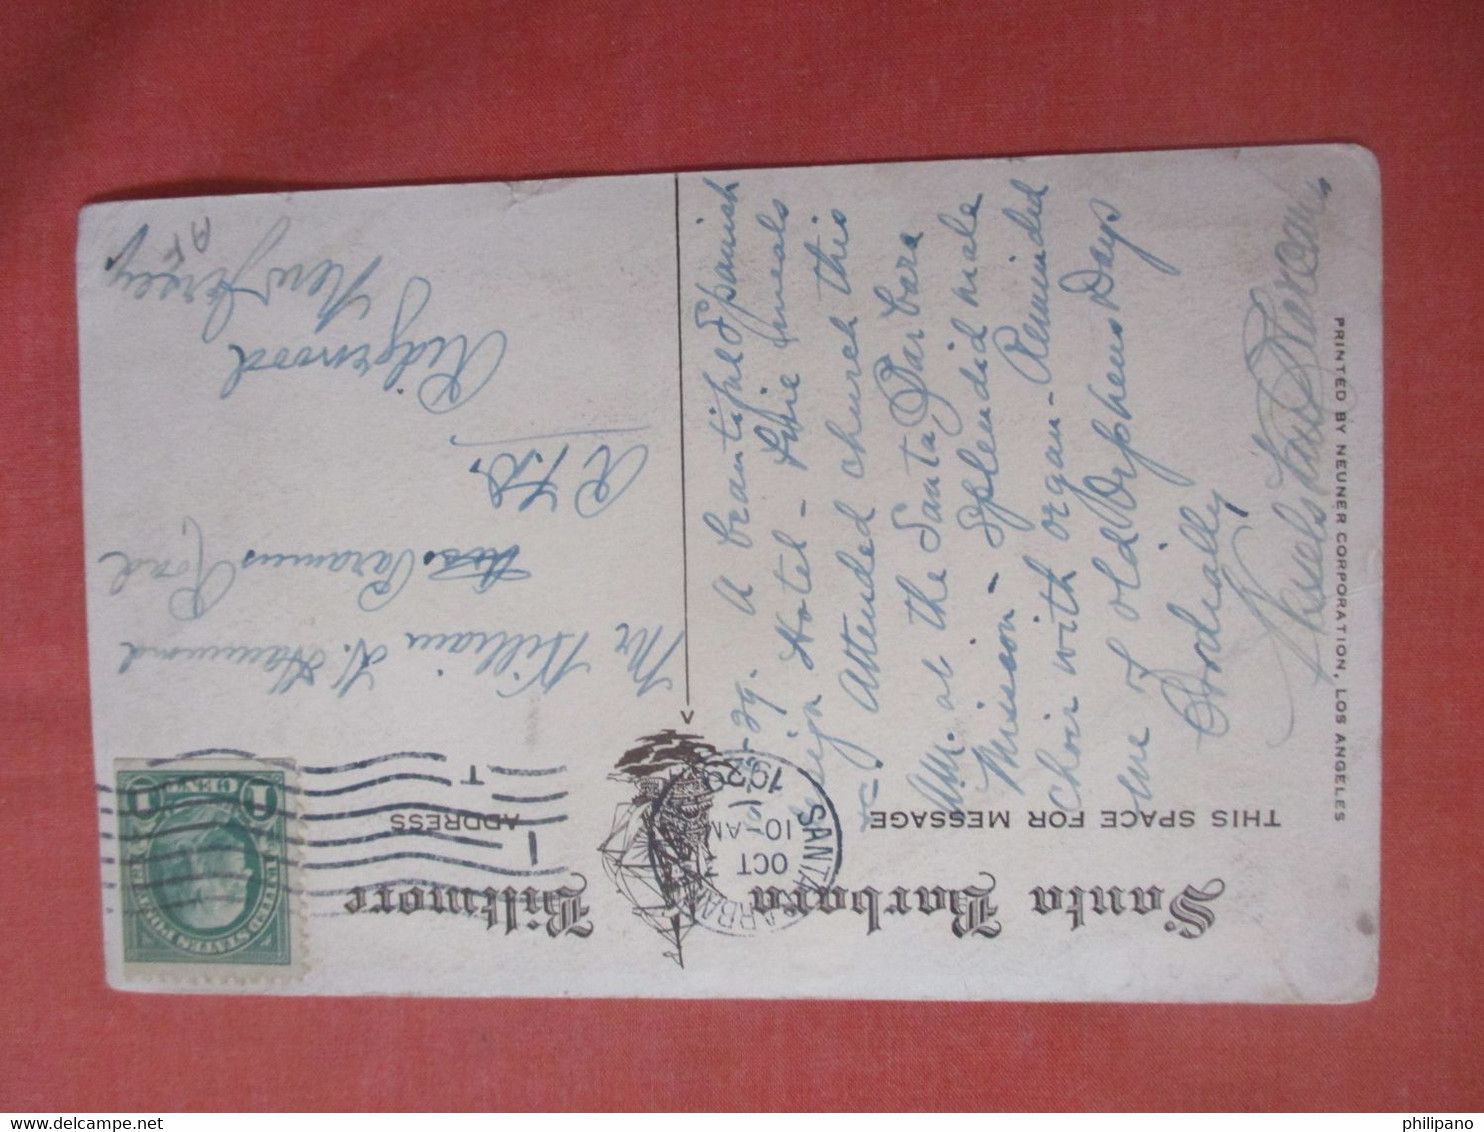 Santa Barbara Biltmore
THIS SPACE FOR MESSAGE
ADDRESS
SANTA BARBARA
OCT 7
10-AM
1929
A beautiful Spanish
Hotel - Fine meals
Attended church this
A.M. at the Santa Barbara
Mission - Splendid male
choir with organ - Reminded
me of old Orpheus Days
Cordially
Mr William H. Hammond
Paramus Road
R.F.D.
Ridgewood
New Jersey
AF
UNITED STATES POSTAGE
1 CENT 1
PRINTED BY NEUNER CORPORATION, LOS ANGELES
philipano